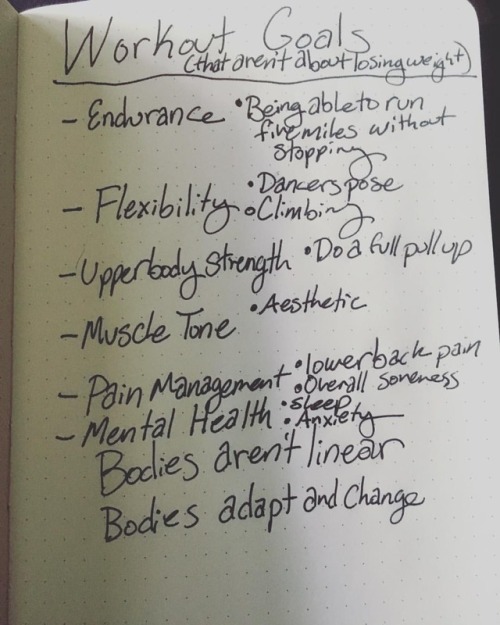 Workout Goals
(that aren't about losing weight)
- Endurance • Being able to run
five miles without
stopping
• Dancers pose
- Flexibility • Climbing
- Upperbody Strength • Do a full pull up
• Aesthetic
- Muscle Tone
• lower back pain
- Pain Management • Overall soreness
• sleep
- Mental Health • Anxiety
Bodies aren't linear
Bodies adapt and Change